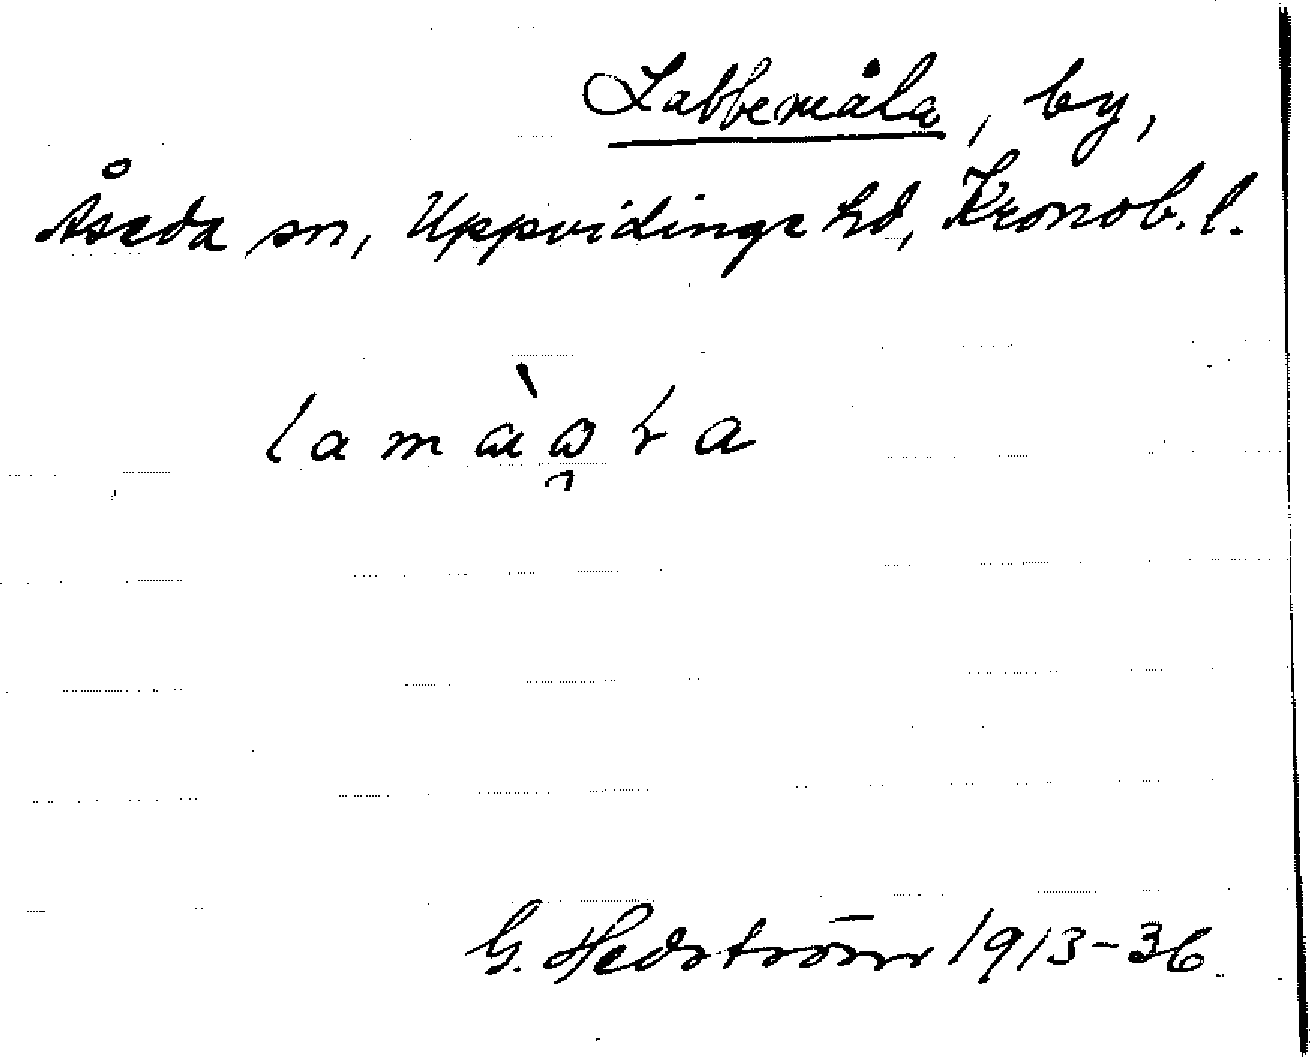 Labbemåla, by,
Åseda sn, Uppvidinge hd, Kronob. l.
G. Hedström 1913-36